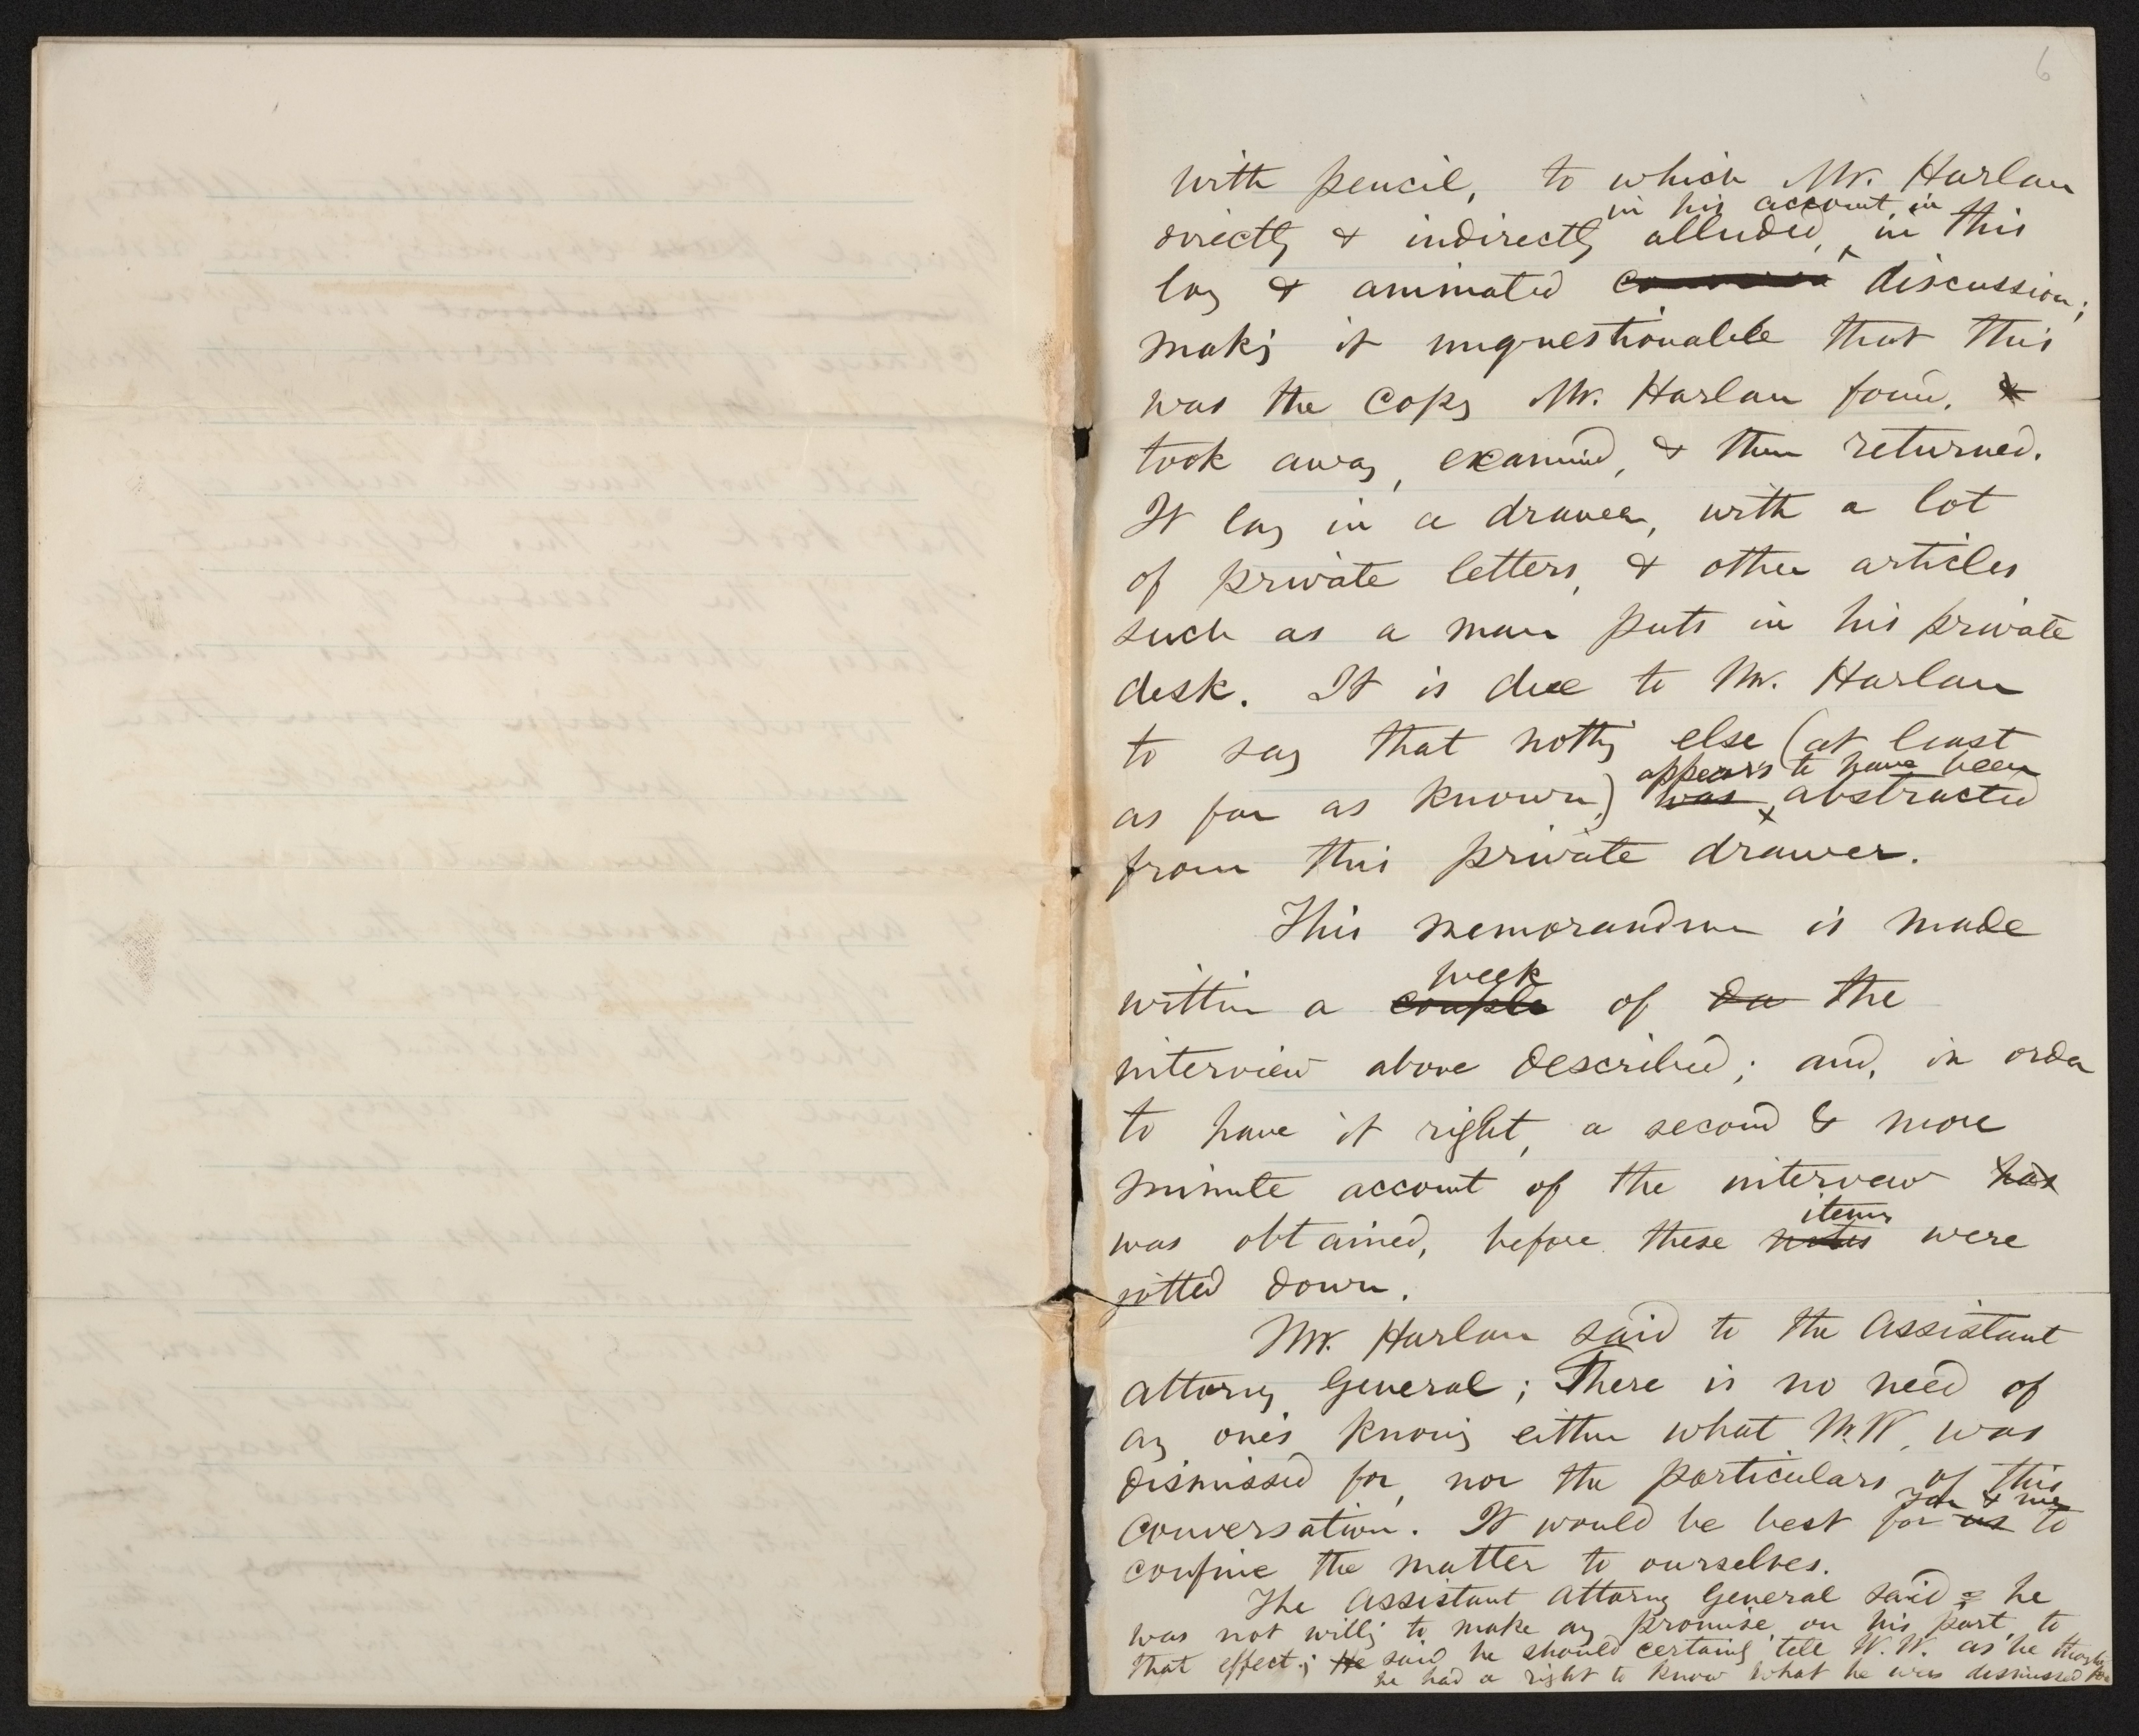 6
with pencil, to which Mr. Harlan
in his account, in
directly & indirectly alluded, in this
long & animated discussion;
making it unquestionable that this
was the copy Mr. Harlan found, &
took away, examined, & then returned.
It lay in a drawer, with a lot
of private letters, & other articles
such as a man puts in his private
desk. It is due to Mr. Harlan
to say that nothing else (at least
appears to have been
as far as known,) was abstracted
from this private drawer.
This memorandum is made
week
within a couple of da the
interview above described; and, in order
to have it right, a second & more
minute account of the interview has
items
was obtained, before these notes were
jotted down.
Mr. Harlan said to the Assistant
Attorney General; There is no need of
any one's knowing either what Mr. W. was
dismissed for, nor the particulars of this
you & me
conversation. It would be best for us to
confine the matter to ourselves.
The Assistant Attorney General said he
was not willing to make any promise, on his part, to
that effect; He said he should certainly tell W. W. as he thought
he had a right to know what he was dismissed for